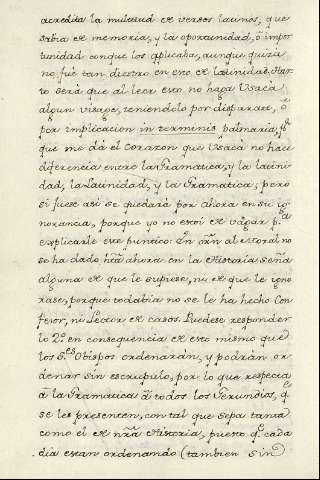 acredita la multitud de versos latinos, que
sabia de memoria, y la oportunidad, ó impor
tunidad conque los aplicaba, aunque quiza
no fue tan diestro en eso de latinidad. Har
to será que al leer esto no haga Usacá
algun visage, teniendolo por disparate, ó
por implicacion in terminis palmaria, pr
que me dá el corazon que Usacá no hace
diferencia entre la Gramatica, y la latini
dad, la Latinidad, y la Gramatica; pero
si fuese asi se quedará por ahora en su ig
norancia, porque yo no estoi de vagar pa
explicarle este puntico. En orn al Moral no
se ha dado hta ahora en la Historia seña
alguna de que le supiese, ni de que le igno
rase, porque todabia no se le ha hecho Con
fesor, ni Lector de casos. Puedese responder
lo 2º en consequencia de esto mismo que
los Ses Obispos ordenarán, y podrán or
denar sin escrupulo, por lo que respecta
á la Gramatica á todos los Gerundios, qe
se les presenten, con tal que sepa tanta
como el de nra Historia, puesto qe cada
dia estan ordenando (tambien sin